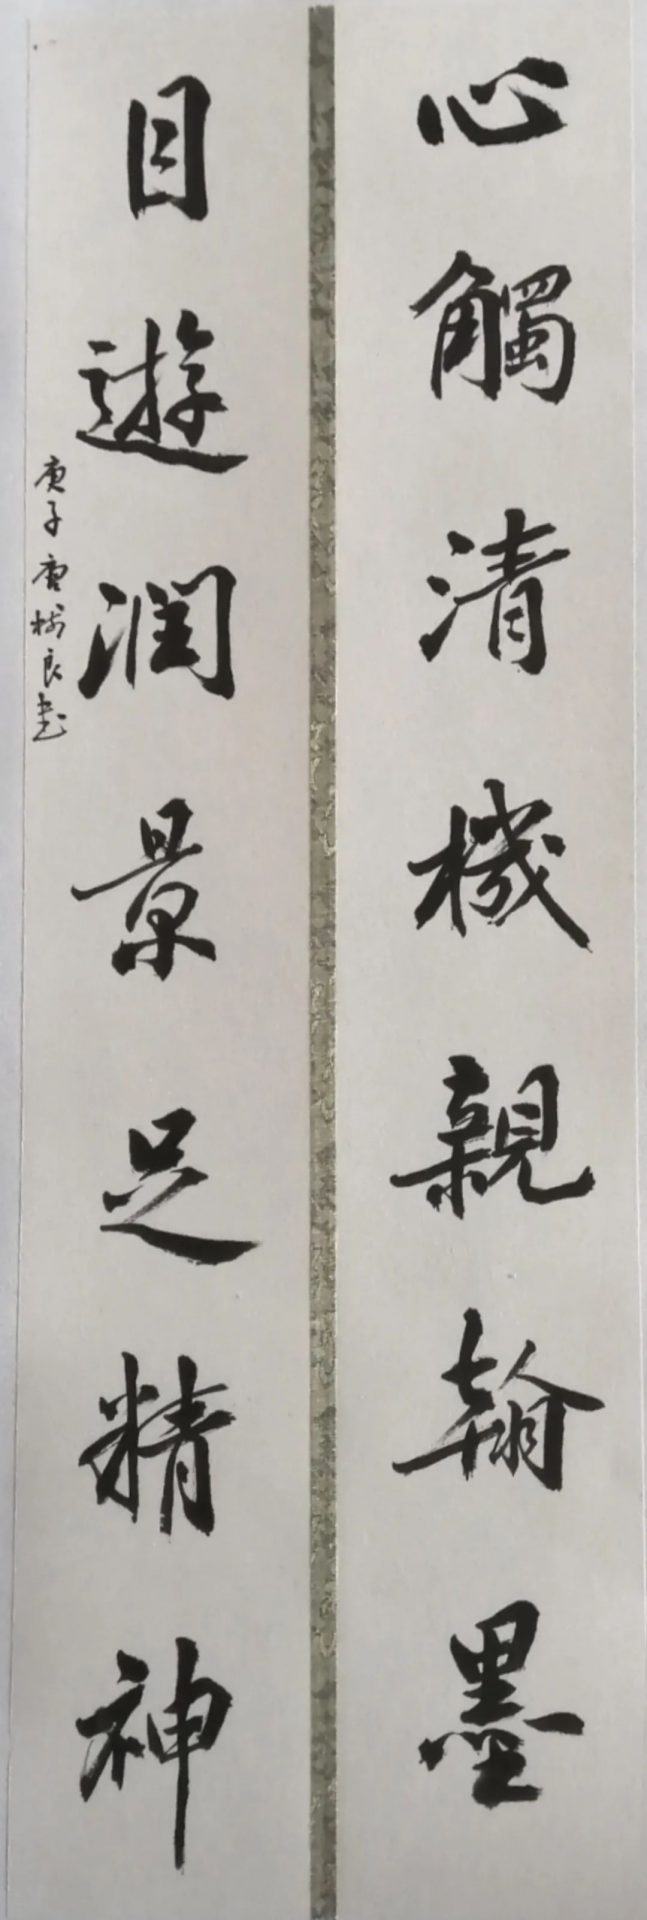 心觸清機親翰墨
目遊潤景足精神
庚子唐樹良書